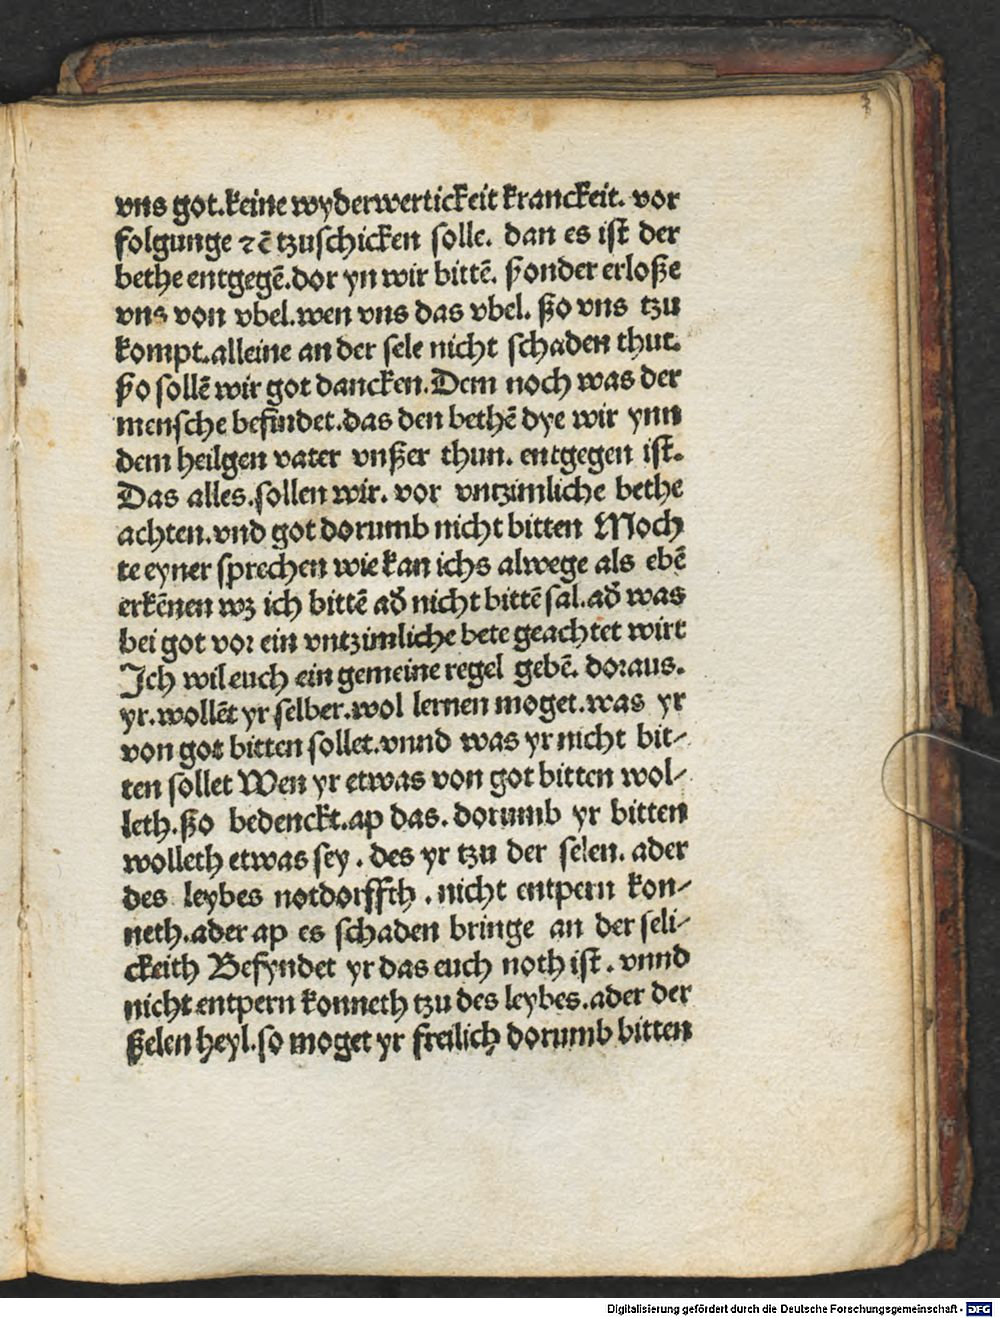 3
vns got.keine wyderwertickeit kranckeit. vor
folgunge ⁊c̄ tzuschicken solle. dan es ist der
bethe entgegē.dor yn wir bittē. ßonder erloße
vns von vbel.wen vns das vbel. ßo vns tzu
kompt.alleine an der sele nicht schaden thut.
ßo sollē wir got dancken.Dem noch was der
mensche befindet.das den bethē dye wir ynn
dem heilgen vater vnßer thun. entgegen ist.
Das alles.sollen wir. vor vntzimliche bethe
achten.vnd got dorumb nicht bitten Moch
te eyner sprechen wie kan ichs alwege als ebē
erkēnen wz ich bittē ad̄ nicht bittē sal.ad̄ was
bei got vor ein vntzimliche bete geachtet wirt
Ich wil euch ein gemeine regel gebē. doraus.
yr.wollēt yr selber.wol lernen moget.was yr
von got bitten sollet.vnnd was yr nicht bit-
ten sollet Wen yr etwas von got bitten wol-
leth.ßo bedenckt.ap das.dorumb yr bitten
wolleth etwas sey.des yr tzu der selen.ader
des leybes notdorffth.nicht entpern kon-
neth.ader ap es schaden bringe an der seli-
ckeith Befyndet yr das euch noth ist.vnnd
nicht entpern konneth tzu des leybes.ader der
ßelen heyl.so moget yr freilich dorumb bitten
Digitalisierung gefördert durch die Deutsche Forschungsgemeinschaft - DFG